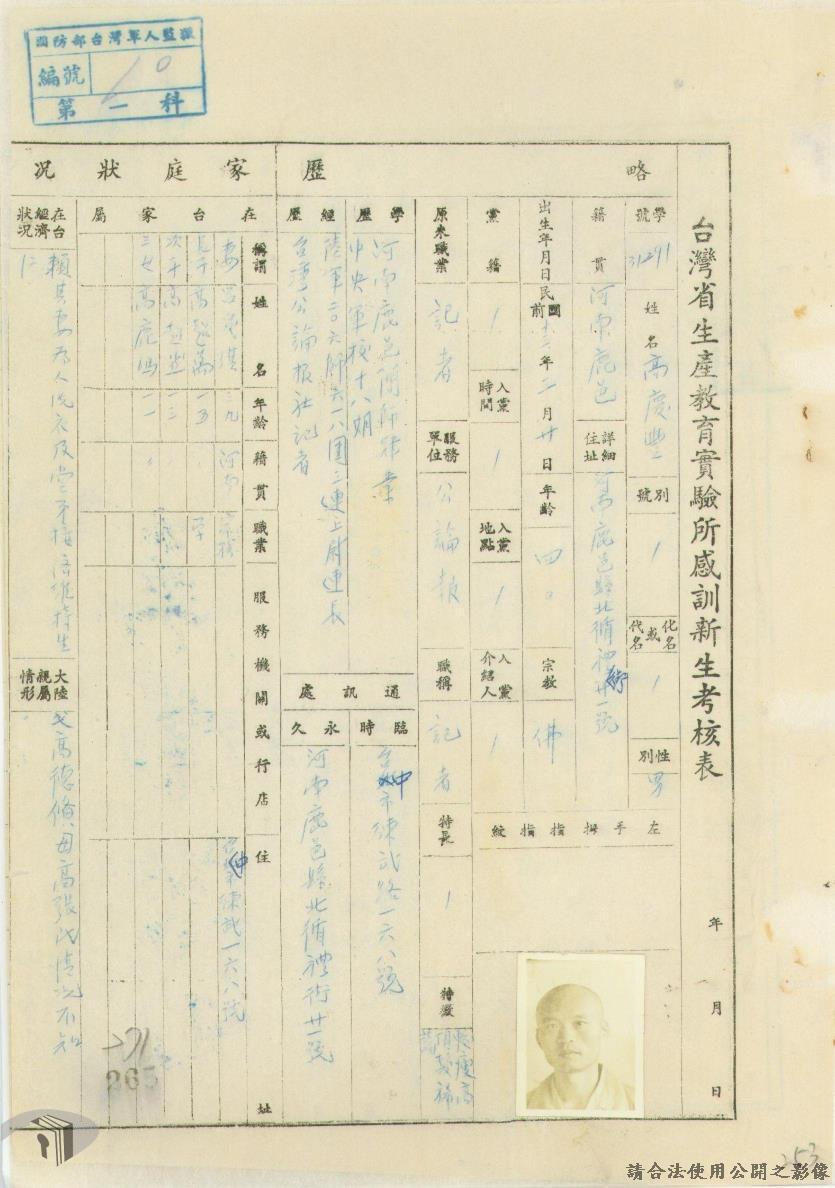 國防部台灣軍人監獄
編號 10
第一科
台灣省生產教育實驗所感訓新生考核表
年 月 日
略歷
學號 31291
姓名 高慶豐
別號 /
化名或代名 /
性別 男
籍貫 河南鹿邑
詳細住址 河南鹿邑縣北循禮街廿一號
左手拇指指紋
出生年月日 民國前 年二月廿日
年齡 四〇
宗教 佛
黨籍 /
入黨時間 /
入黨地點 /
入黨介紹人 /
原來職業 記者
服務單位 公論報
職稱 記者
特長 /
特徵
學歷
河南鹿邑簡師畢業
中央軍校十八期
經歷
陸軍二〇六師六一八團三連上尉連長
台灣公論報社記者
通訊處
臨時 台中市練武路一六八號
永久 河南鹿邑縣北循禮街廿一號
家庭狀況
在台家屬
稱謂 姓名 年齡 籍貫 職業 服務機關或行店 住址
妻 三九 河南 家務 台中市練武一六八號
長子 高 一五 學
次子 高 一三
三女 高鹿 一一
在台經濟狀況
賴其妻為人洗衣及 維持生活
大陸親屬情形
父高德修母高張氏情況不知
265
253
請合法使用公開之影像